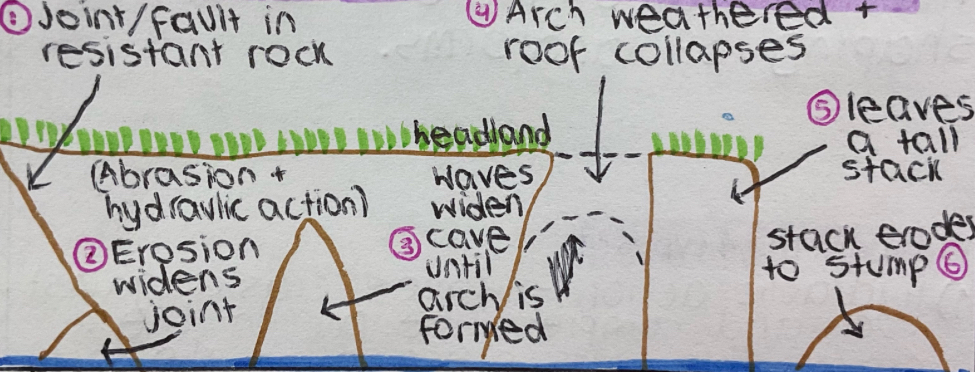 ① Joint/fault in
resistant rock
④ Arch weathered +
roof collapses
⑤ leaves
a tall
stack
headland
(Abrasion +
hydraulic action)
② Erosion
widens
joint
waves
widen
③ cave
until
arch is
formed
stack erodes
to stump ⑥